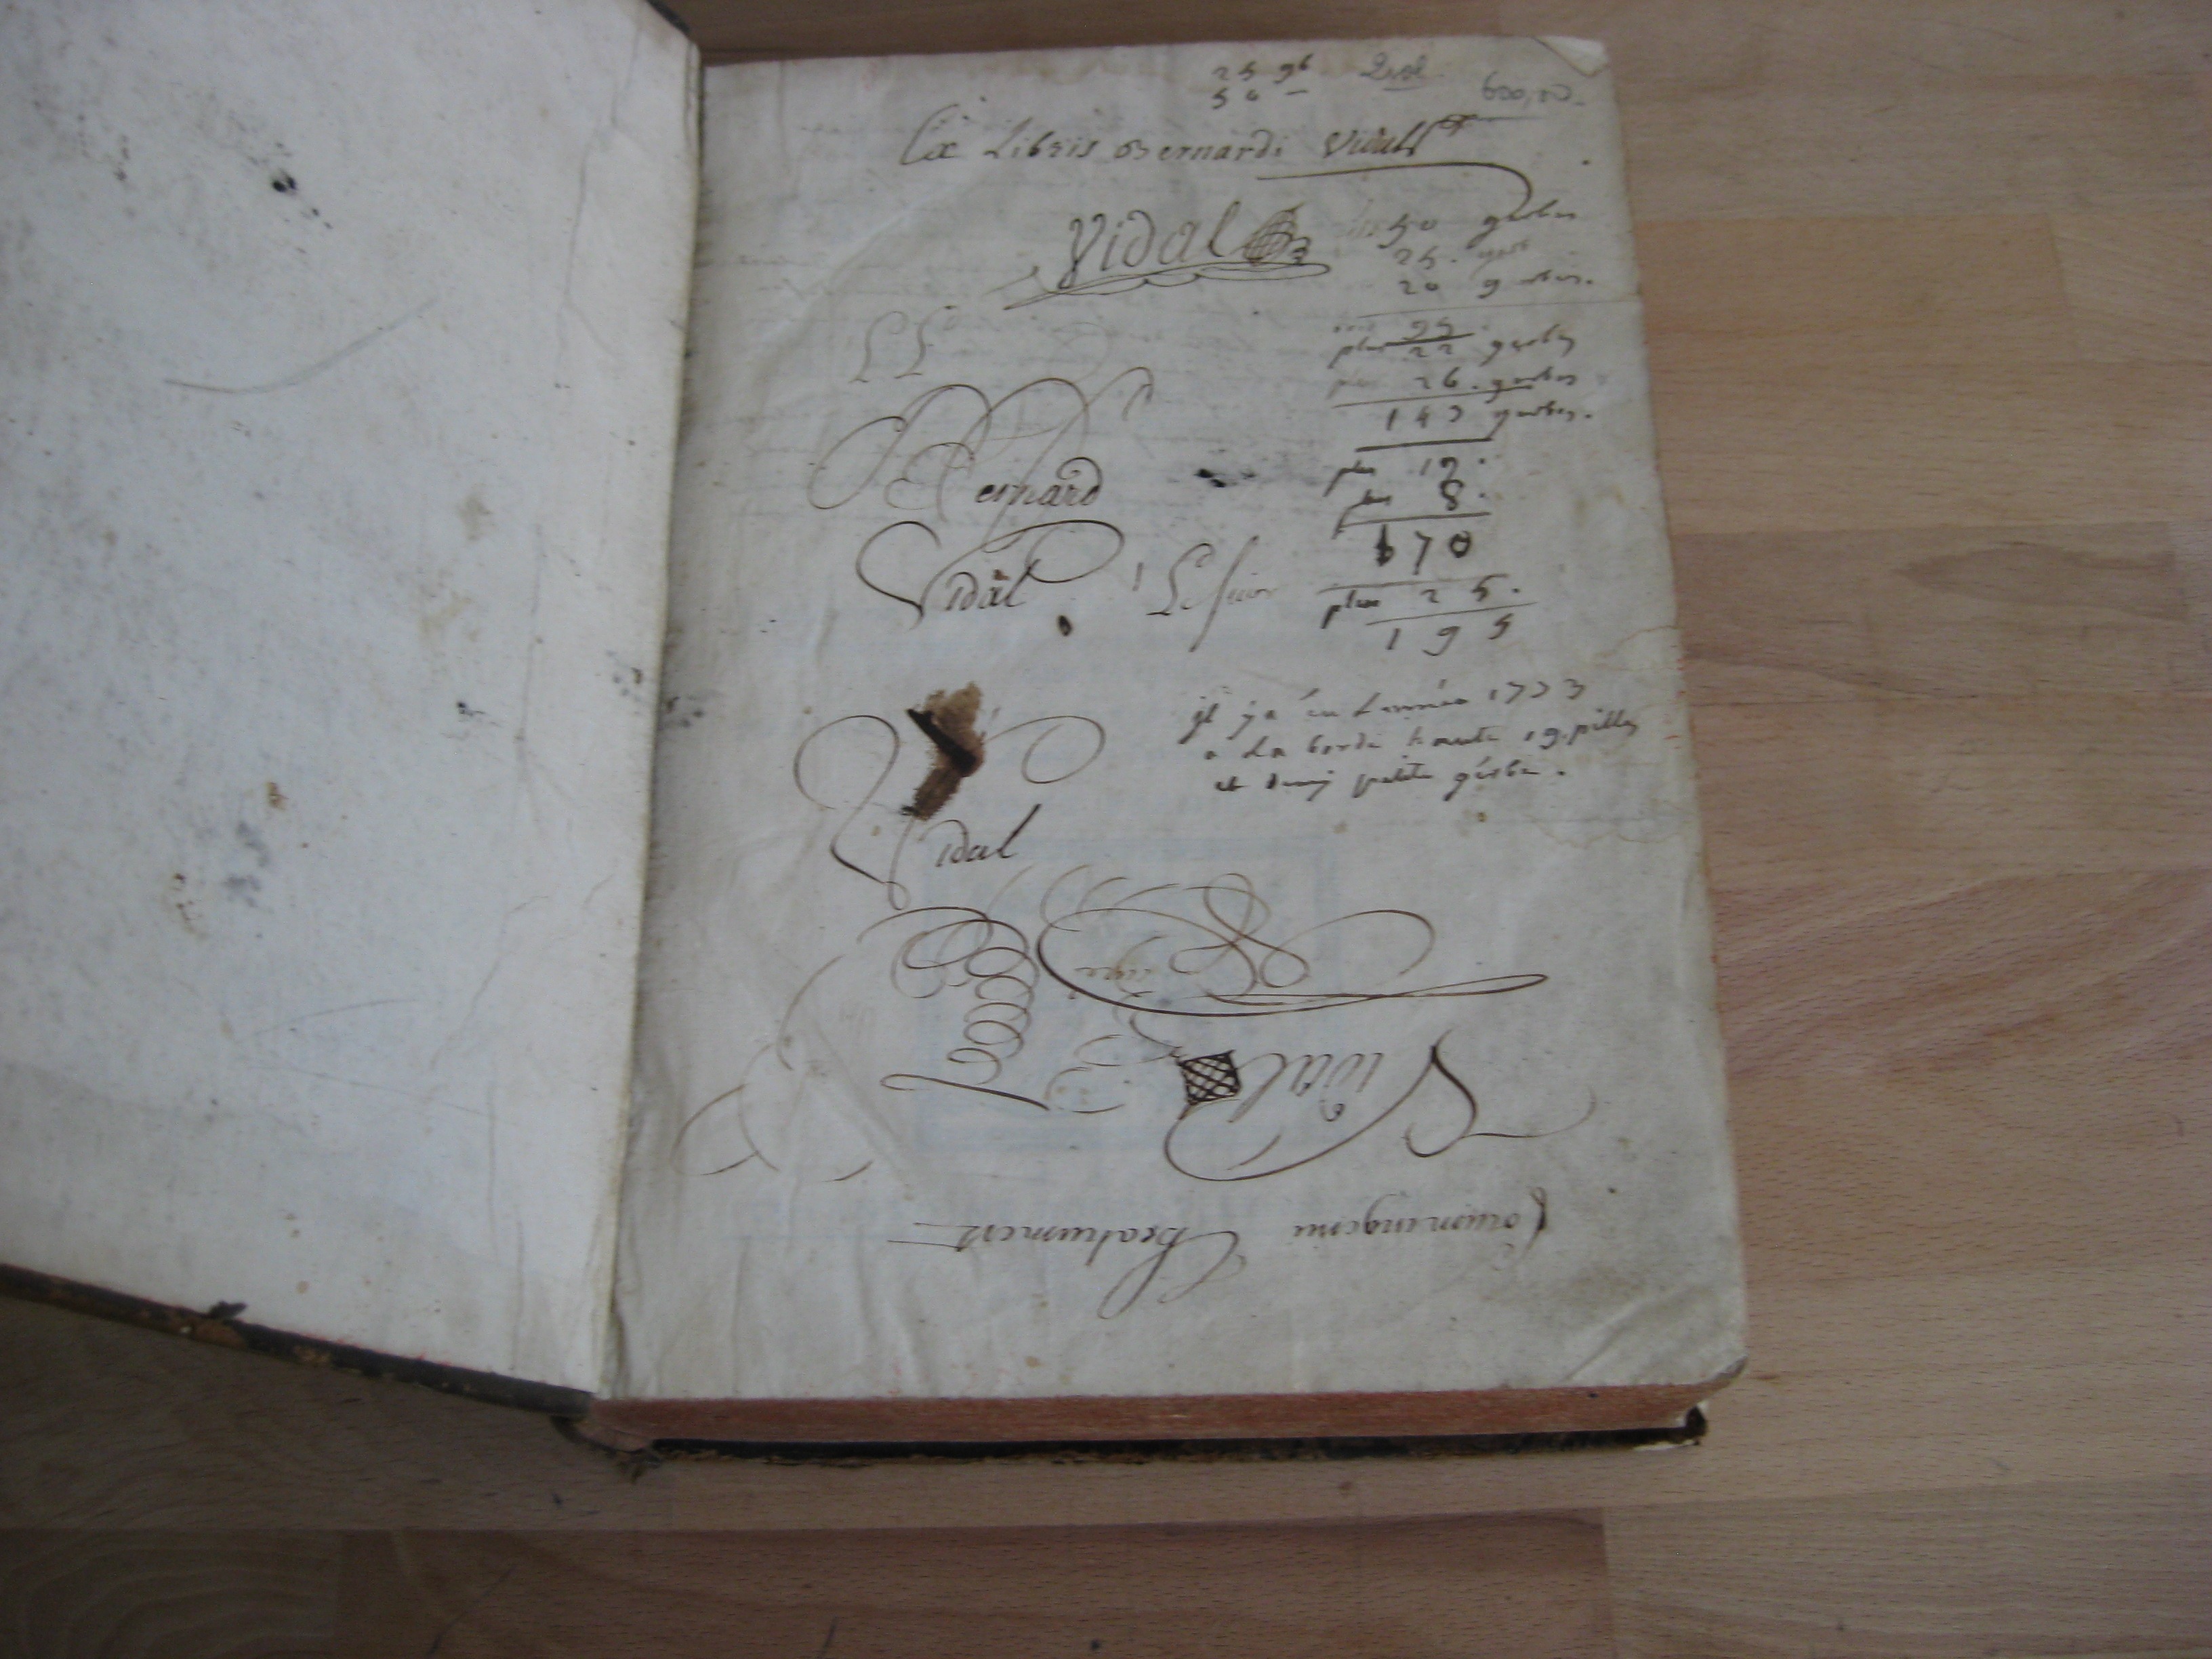 25 g6
50 —
600,00
Ex Libris Bernardi Vidal
Vidal
50 gerbes
25. gerb
20 gerbes.
95
plus 22 gerbes
plus 26. gerbes
143 gerbes.
plus 19.
plus 8.
170
plus 25.
195
LL
Bernard
Vidal
Le sieur
il y a eu Lannéa 1773
a La borde haute 19. pilles
et demj petite gerbe.
Vidal
Vidal